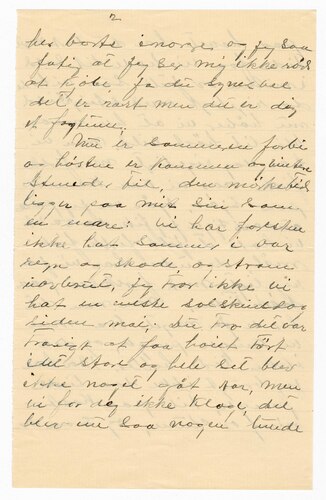 2
her borte i norge og jeg saa
fatig at jeg ser mig ikke rød
at kjøbe, ja du synes vel
det er rart men det er dog
et fagtum.
Nu er sommeren forbi
og høsten er kommen og vinteren
stunder til, den mørketid
ligger paa mig sin som
en mare: Vi har forsten
ikke hat sommer i var
regn og skode, og strom
uavbrut, jeg tror ikke vi
hat en neste solskinsdag
siden mai; Du tro det var
trasigt at faa høiet tørt
i det stor og hele set blev
ikke noget gåt tør, men
vi tør dog ikke klage, det
blev nu saa nogen lunde